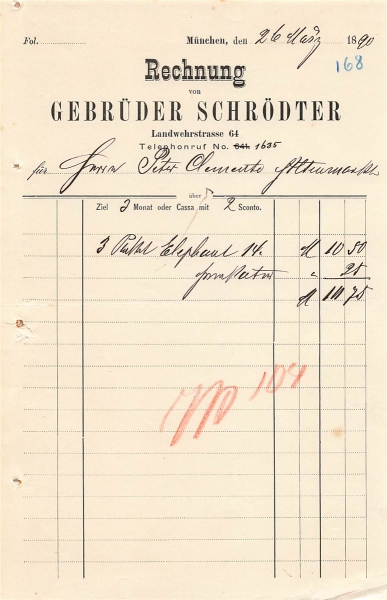 Fol.
München, den 26 März 1890
168
Rechnung
von
GEBRÜDER SCHRÖDTER
Landwehrstrasse 64
Telephonruf No. 641. 1635
für Herrn Peter Clemente Altenmarkt
über
Ziel 3 Monat oder Cassa mit 2 Sconto.
3 Elephant 14. M 10 50
" 25
M 10 75
104